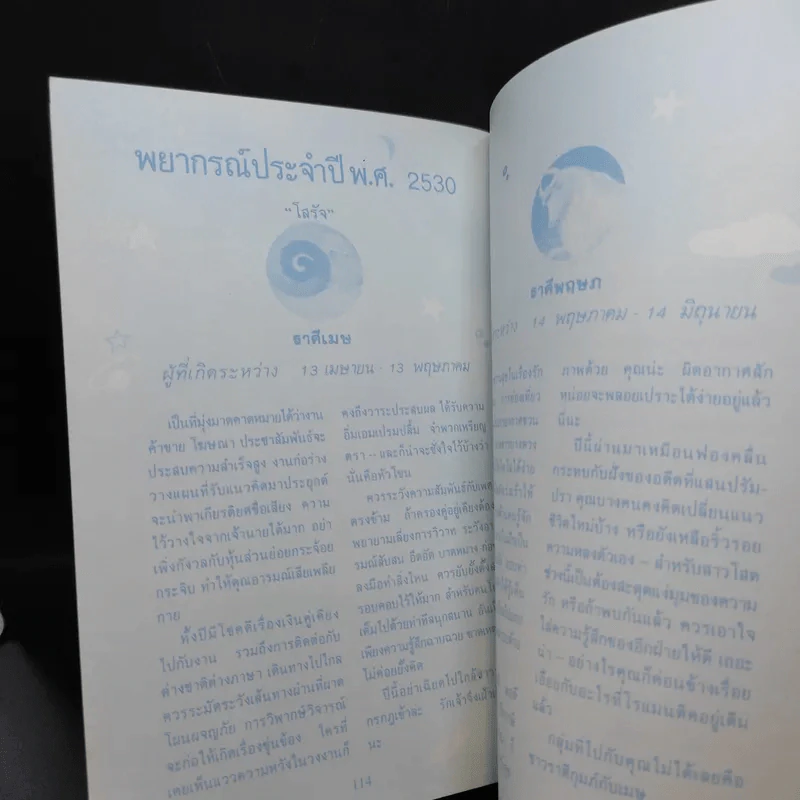 พยากรณ์ประจำปี พ.ศ. 2530
"โสรัจ"
ราศีเมษ
ผู้ที่เกิดระหว่าง 13 เมษายน - 13 พฤษภาคม
เป็นที่มุ่งมาดคาดหมายได้ว่างาน
ค้าขาย โฆษณา ประชาสัมพันธ์จะ
ประสบความสำเร็จสูง งานก่อร่าง
วางแผนที่รับแนวคิดมาประยุกต์
จะนำพาเกียรติยศชื่อเสียง ความ
ไว้วางใจจากเจ้านายได้มาก อย่า
เพิ่งกังวลกับหุ้นส่วนย่อยกระจ้อย
กระจิบ ทำให้คุณอารมณ์เสียเพลีย
กาย
ทั้งปีมีโชคดีเรื่องเงินคู่เคียง
ไปกับงาน รวมถึงการติดต่อกับ
ต่างชาติต่างภาษา เดินทางไปไกล
ควรระมัดระวังเส้นทางผ่านที่ผาด
โผนผจญภัย การวิพากษ์วิจารณ์
จะก่อให้เกิดเรื่องขุ่นข้อง ใครที่
เคยเห็นแววความหวังในวงงานก็
คงถึงวาระประสบผล ได้รับความ
อิ่มเอมเปรมปลื้ม จำพวกเหรียญ
ตรา – และก็น่าจะชั่งใจไว้บ้างว่า
นั่นคือหัวโขน
ควรระวังความสัมพันธ์กับเพศ
ตรงข้าม ถ้าครองคู่อยู่เคียงต้อง
พยายามเลี่ยงการวิวาท ระวังอา
รมณ์สับสน อึดอัด บาดหมาง ก่อน
ลงมือทำสิ่งไหน ควรยับยั้งชั่ง
รอบคอบไว้ให้มาก สำหรับคนโส
เต็มไปด้วยท่าทีสนุกสนาน อันเป็
เพียงความรู้สึกฉาบฉวย ขาดเหตุ
ไม่ค่อยยั้งคิด
ปีนี้อย่าเฉียดไปใกล้ชาว
กรกฎเข้าละ รักเจ้าจึงเป็น
นะ
114
ราศีพฤษภ
ระหว่าง 14 พฤษภาคม - 14 มิถุนายน
ภาพด้วย คุณน่ะ ผิดอากาศสัก
หน่อยจะพลอยเปราะได้ง่ายอยู่แล้ว
นี่นะ
ปีนี้ผ่านมาเหมือนฟองคลื่น
กระทบกับฝั่งของอดีตที่แสนปรัม-
ปรา คุณบางคนคงคิดเปลี่ยนแนว
ชีวิตใหม่บ้าง หรือยังเหลือริ้วรอย
ความหลงตัวเอง – สำหรับสาวโสด
ช่วงนี้เป็นต้องสะดุดแง่มุมของความ
รัก หรือถ้าพบกันแล้ว ควรเอาใจ
ใส่ความรู้สึกของอีกฝ่ายให้ดี เถอะ
น่า – อย่างไรคุณก็ค่อนข้างเรื่อย
เฉื่อยกับอะไรที่โรแมนติคอยู่เดิม
แล้ว
กลุ่มที่ไปกับคุณไม่ได้เลยคือ
ชาวราศีกุมภ์กับเมษ